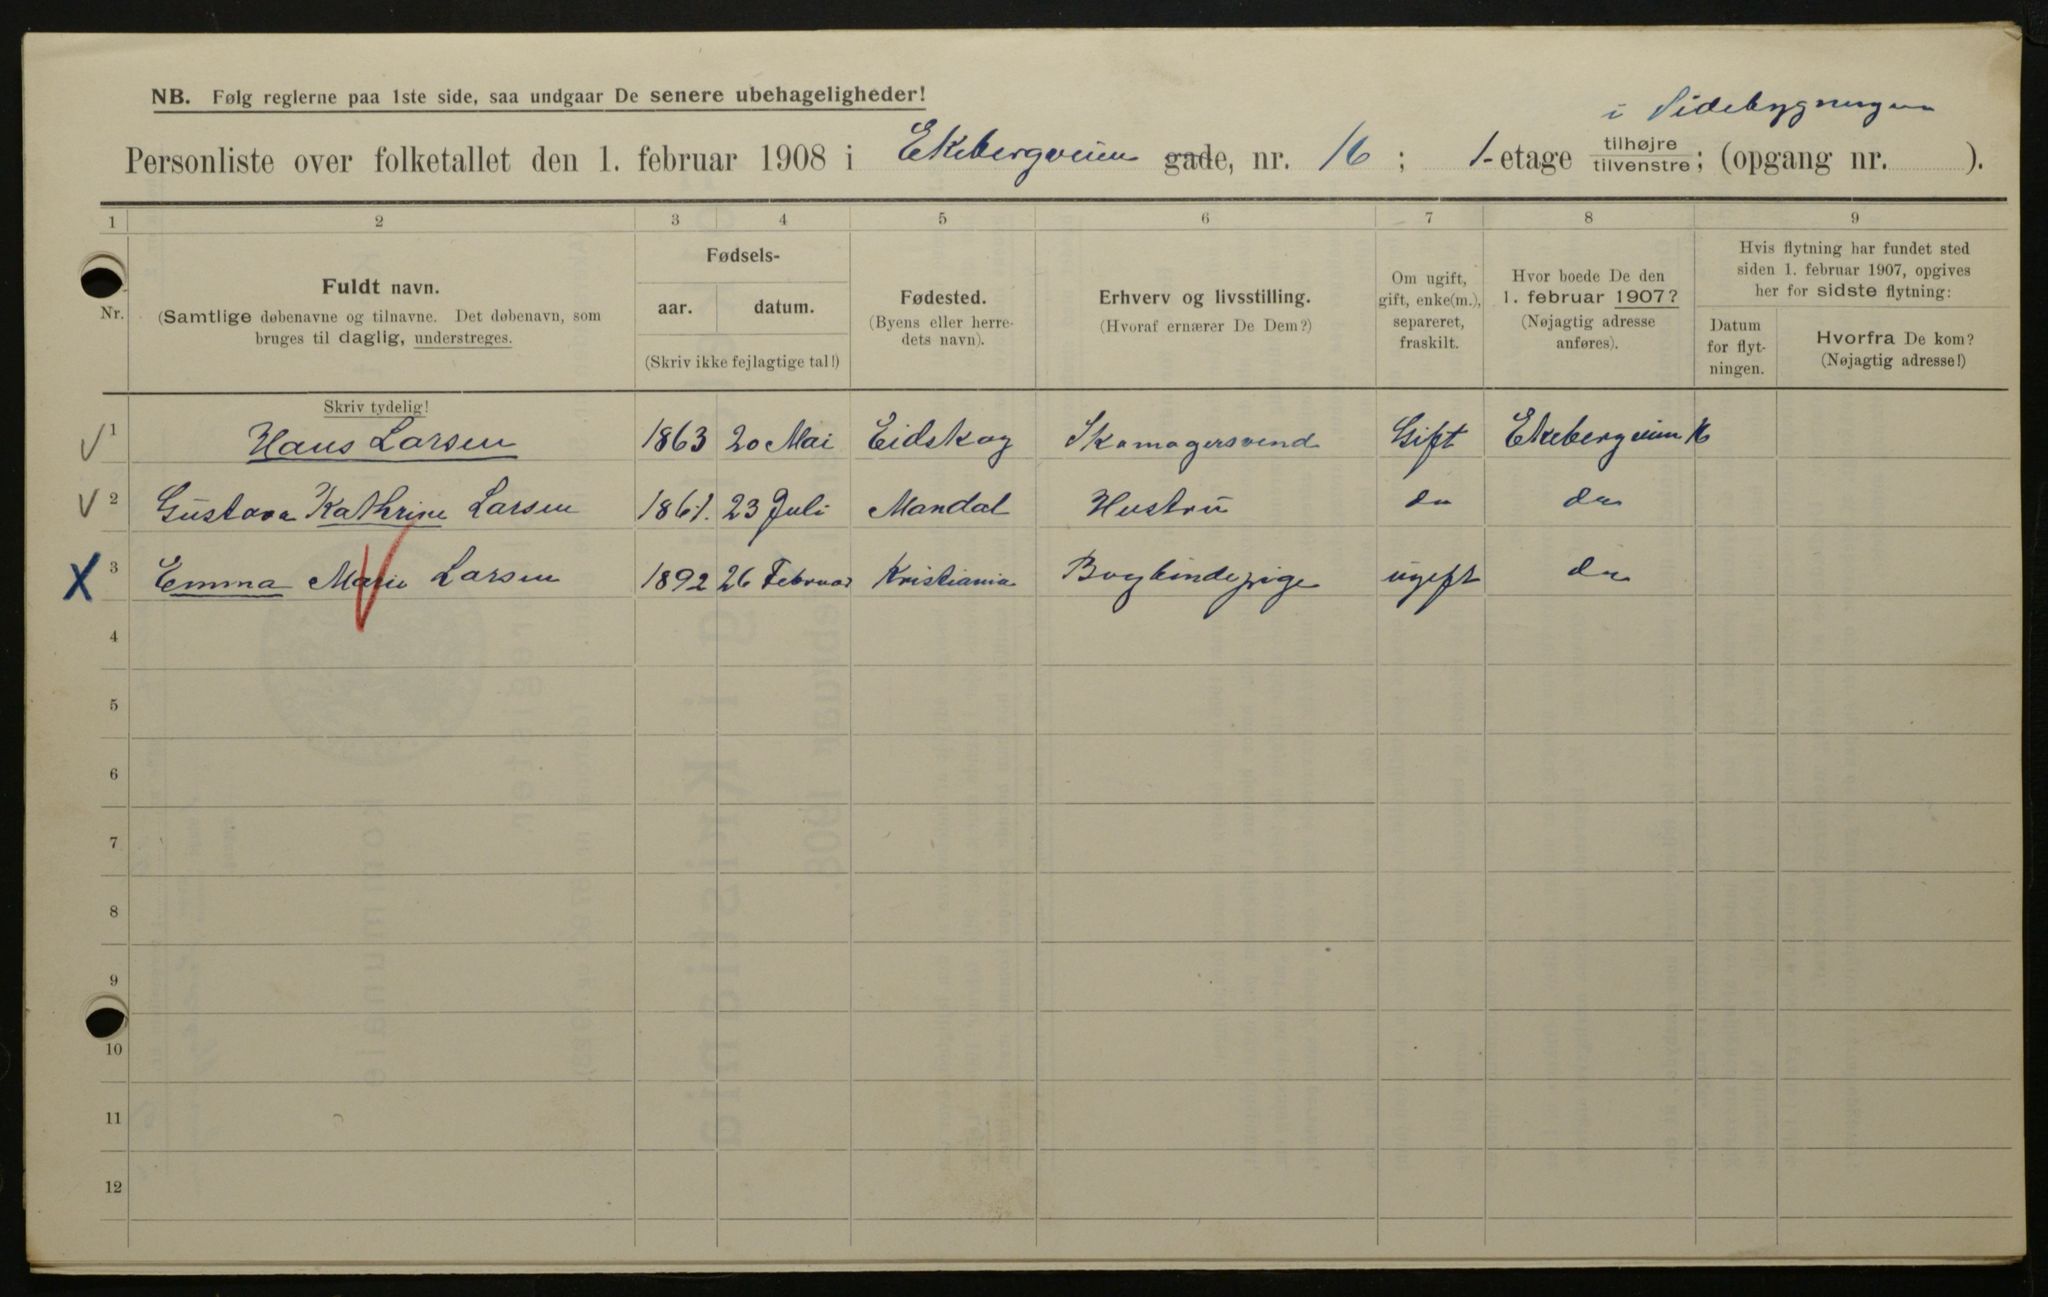 NB. Følg reglerne paa 1ste side, saa undgaar De senere ubehageligheder!
i Sidebygningen
Personliste over folketallet den 1. februar 1908 i Ekebergveien gade, nr. 16 ; 1-etage tilhøjre tilvenstre; (opgang nr. ).
1 2 3 4 5 6 7 8 9
Nr.
Fuldt navn.
(Samtlige døbenavne og tilnavne. Det døbenavn, som
bruges til daglig, understreges.
Skriv tydelig!
Fødsels-
aar. datum.
(Skriv ikke fejlagtige tal!)
Fødested.
(Byens eller herre-
dets navn).
Erhverv og livsstilling.
(Hvoraf ernærer De Dem?)
Om ugift,
gift, enke(m.),
separeret,
fraskilt.
Hvor boede De den
1. februar 1907?
(Nøjagtig adresse
anføres).
Hvis flytning har fundet sted
siden 1. februar 1907, opgives
her for sidste flytning:
Datum
for flyt-
ningen.
Hvorfra De kom?
(Nøjagtig adresse!)
1 Hans Larsen 1863 20 Mai Eidskog Skomagersvend Gift Ekebergveien 16
2 Gustava Kathrine Larsen 1861. 23 Juli Mandal Hustru do do
X 3 Emma Marie Larsen 1892 26 Februar Kristiania Bogbindepige ugift do
4
5
6
7
8
9
10
11
12